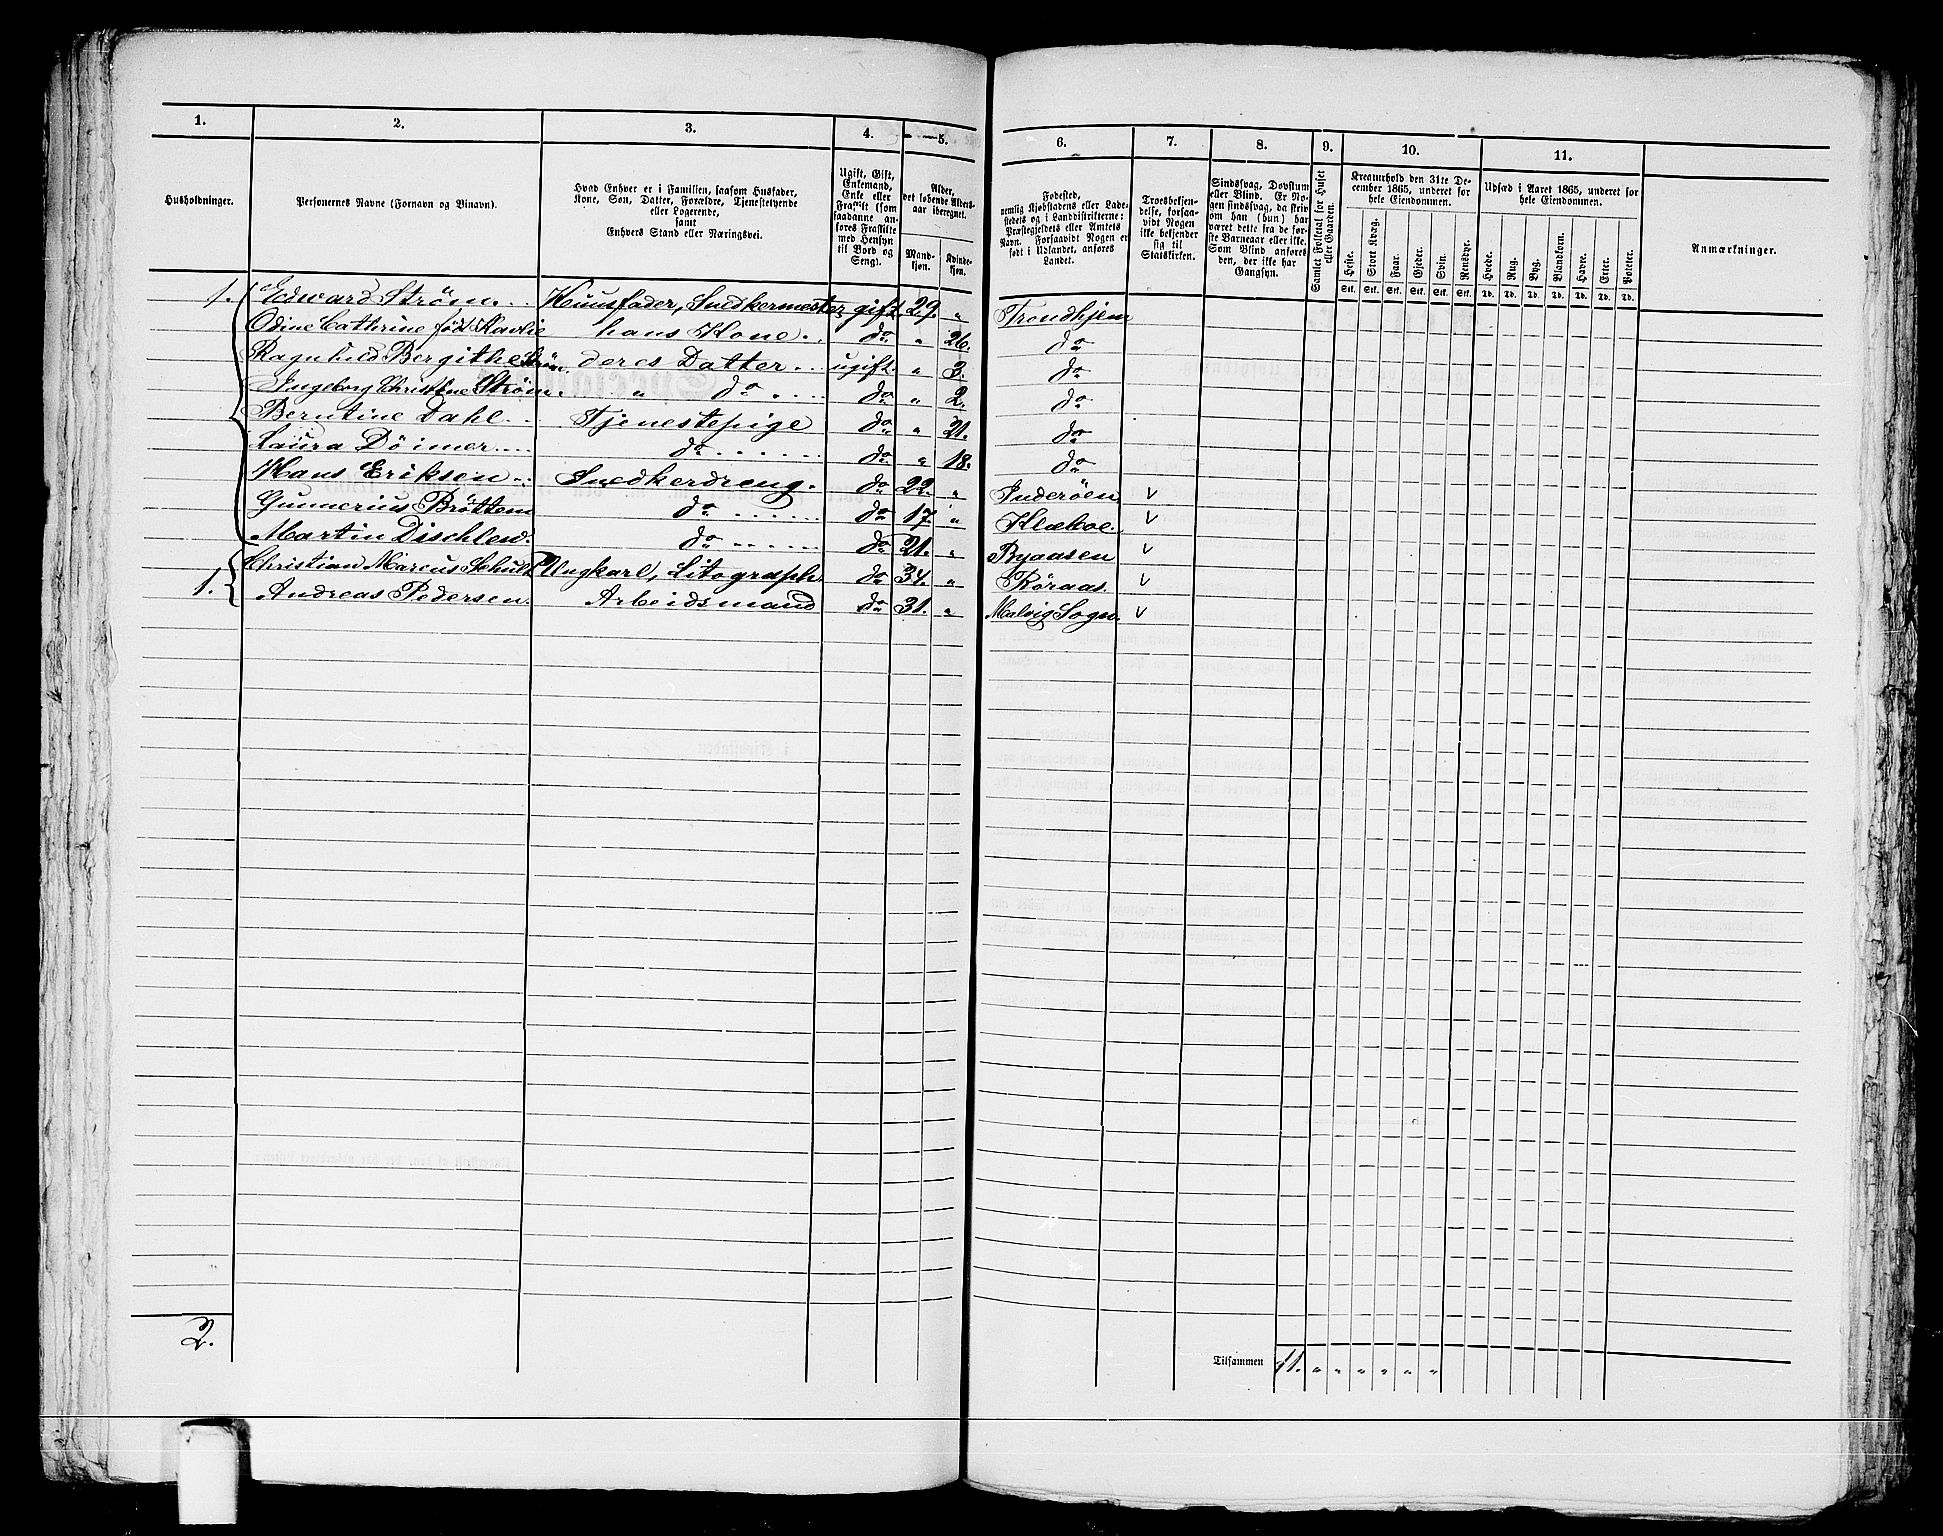 1. 2. 3. 4. 5. 6. 7. 8. 9. 10. 11.
Husholdninger.
Personernes Navne (Fornavn og Binavn).
Hvad Enhver er i Familien, saasom Husfader,
Kone, Søn, Datter, Forældre, Tjenestetyende
eller Logerende,
samt
Enhvers Stand eller Næringsvei.
Ugift, Gift,
Enkemand,
Enke eller
Fraskilt (som
saadanne an-
føres Fraskilte
med Hensyn
til Bord og
Seng).
Alder,
det løbende Alders-
aar iberegnet.
Mand-
kjøn.
Kvinde-
kjøn.
Fødested,
nemlig Kjøbstadens eller Lade-
stedets og i Landdistrikterne:
Præstegjeldets eller Amtets
Navn. Forsaavidt Nogen er
født i Udlandet, anføres
Landet.
Troesbekjen-
delse, forsaa-
vidt Nogen
ikke bekjender
sig til
Statskirken.
Sindssvag, Døvstum
eller Blind. Er No-
gen sindssvag, da skriv
om han (hun) har
været dette fra de før-
ste Barneaar eller ikke.
Som Blind anføres
den, der ikke har
Gangsyn.
Samlet Folketal for Huset
eller Gaarden.
Kreaturhold den 31te De-
cember 1865, underet for
hele Eiendommen.
Heste. Stort Kvæg. Faar. Gjeder. Svin. Rensdyr.
Stk. Stk. Stk. Stk. Stk. Stk.
Udsæd i Aaret 1865, underet for
hele Eiendommen.
Hvede. Rug. Byg. Blandkorn. Havre. Erter. Poteter.
Td. Td. Td. Td. Td. Td. Td.
Anmærkninger.
1. Edward Strøm Huusfader, Snedkermester gift 29. " Trondhjem
Odine Cathrine født hans Kone do " 26. do
Ragnhild Bergithe Strøm deres Datter ugift. " 3. do
Ingeborg Christine Strøm. " do do " 2. do
Berntine Dahl Tjenestepige do " 21. do
Laura Döimer do do " 18. do
Hans Eriksen Snedkerdreng. do 22. " Inderøen v
Gunnerius Bröttem do do 17. " Klæboe. v
Martin Dischlew. do do 21. " Byaasen v
1. Christian Marcus Schultz Ungkarl, Litograph do 34. " Røraas. v
Andreas Pedersen. Arbeidsmand do 31. " Malvig Sogn. v
2.
Tilsammen 11. " " " " " "